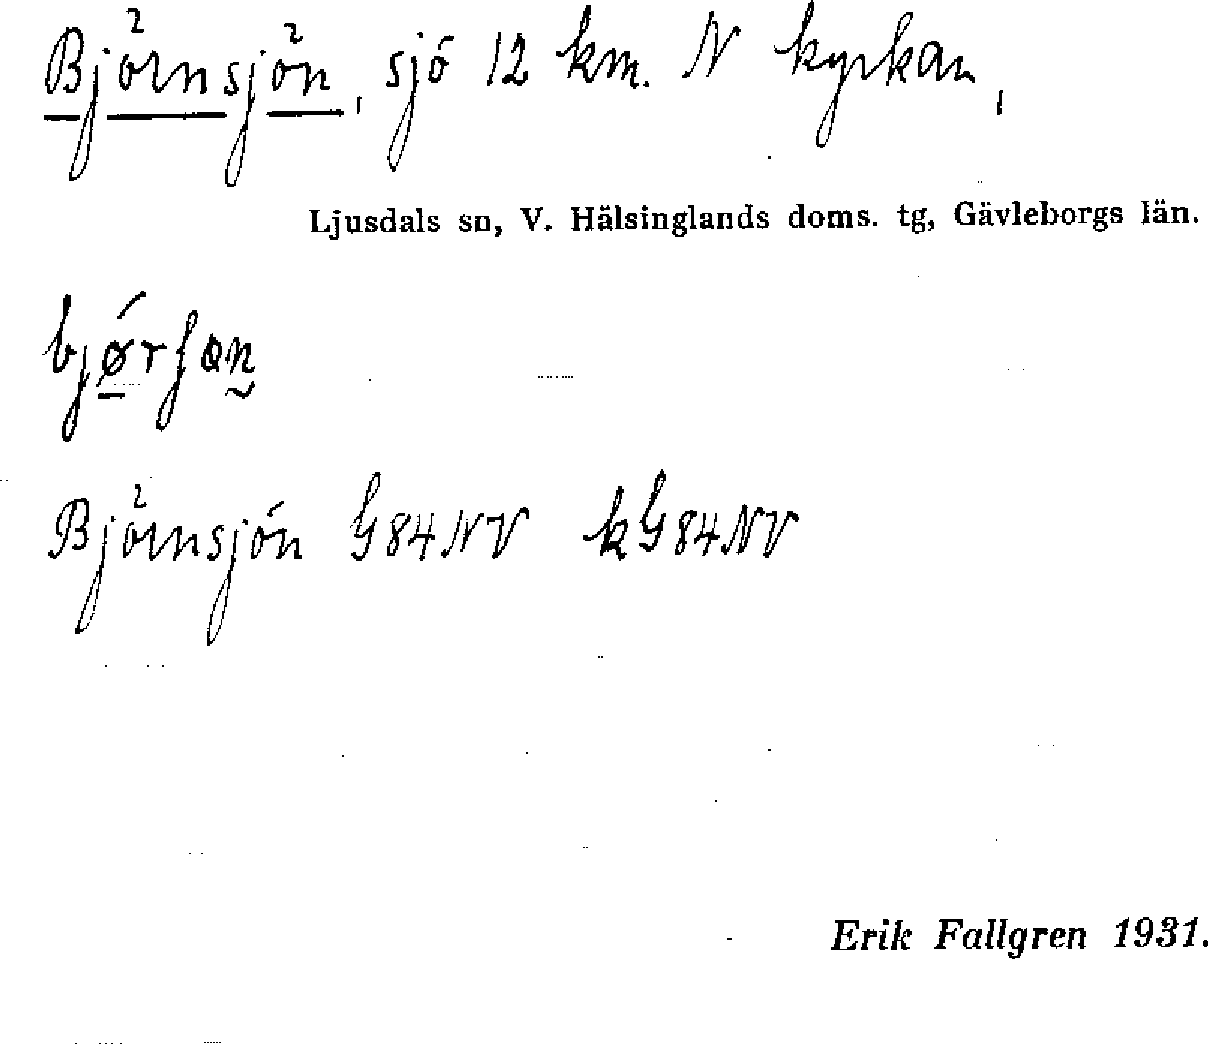 Björnsjön, sjö 12 km. N kyrkan,
Ljusdals sn, V. Hälsinglands doms. tg, Gävleborgs län.
bjǿrʃan
Björnsjön G84NV kG84NV
Erik Fallgren 1931.